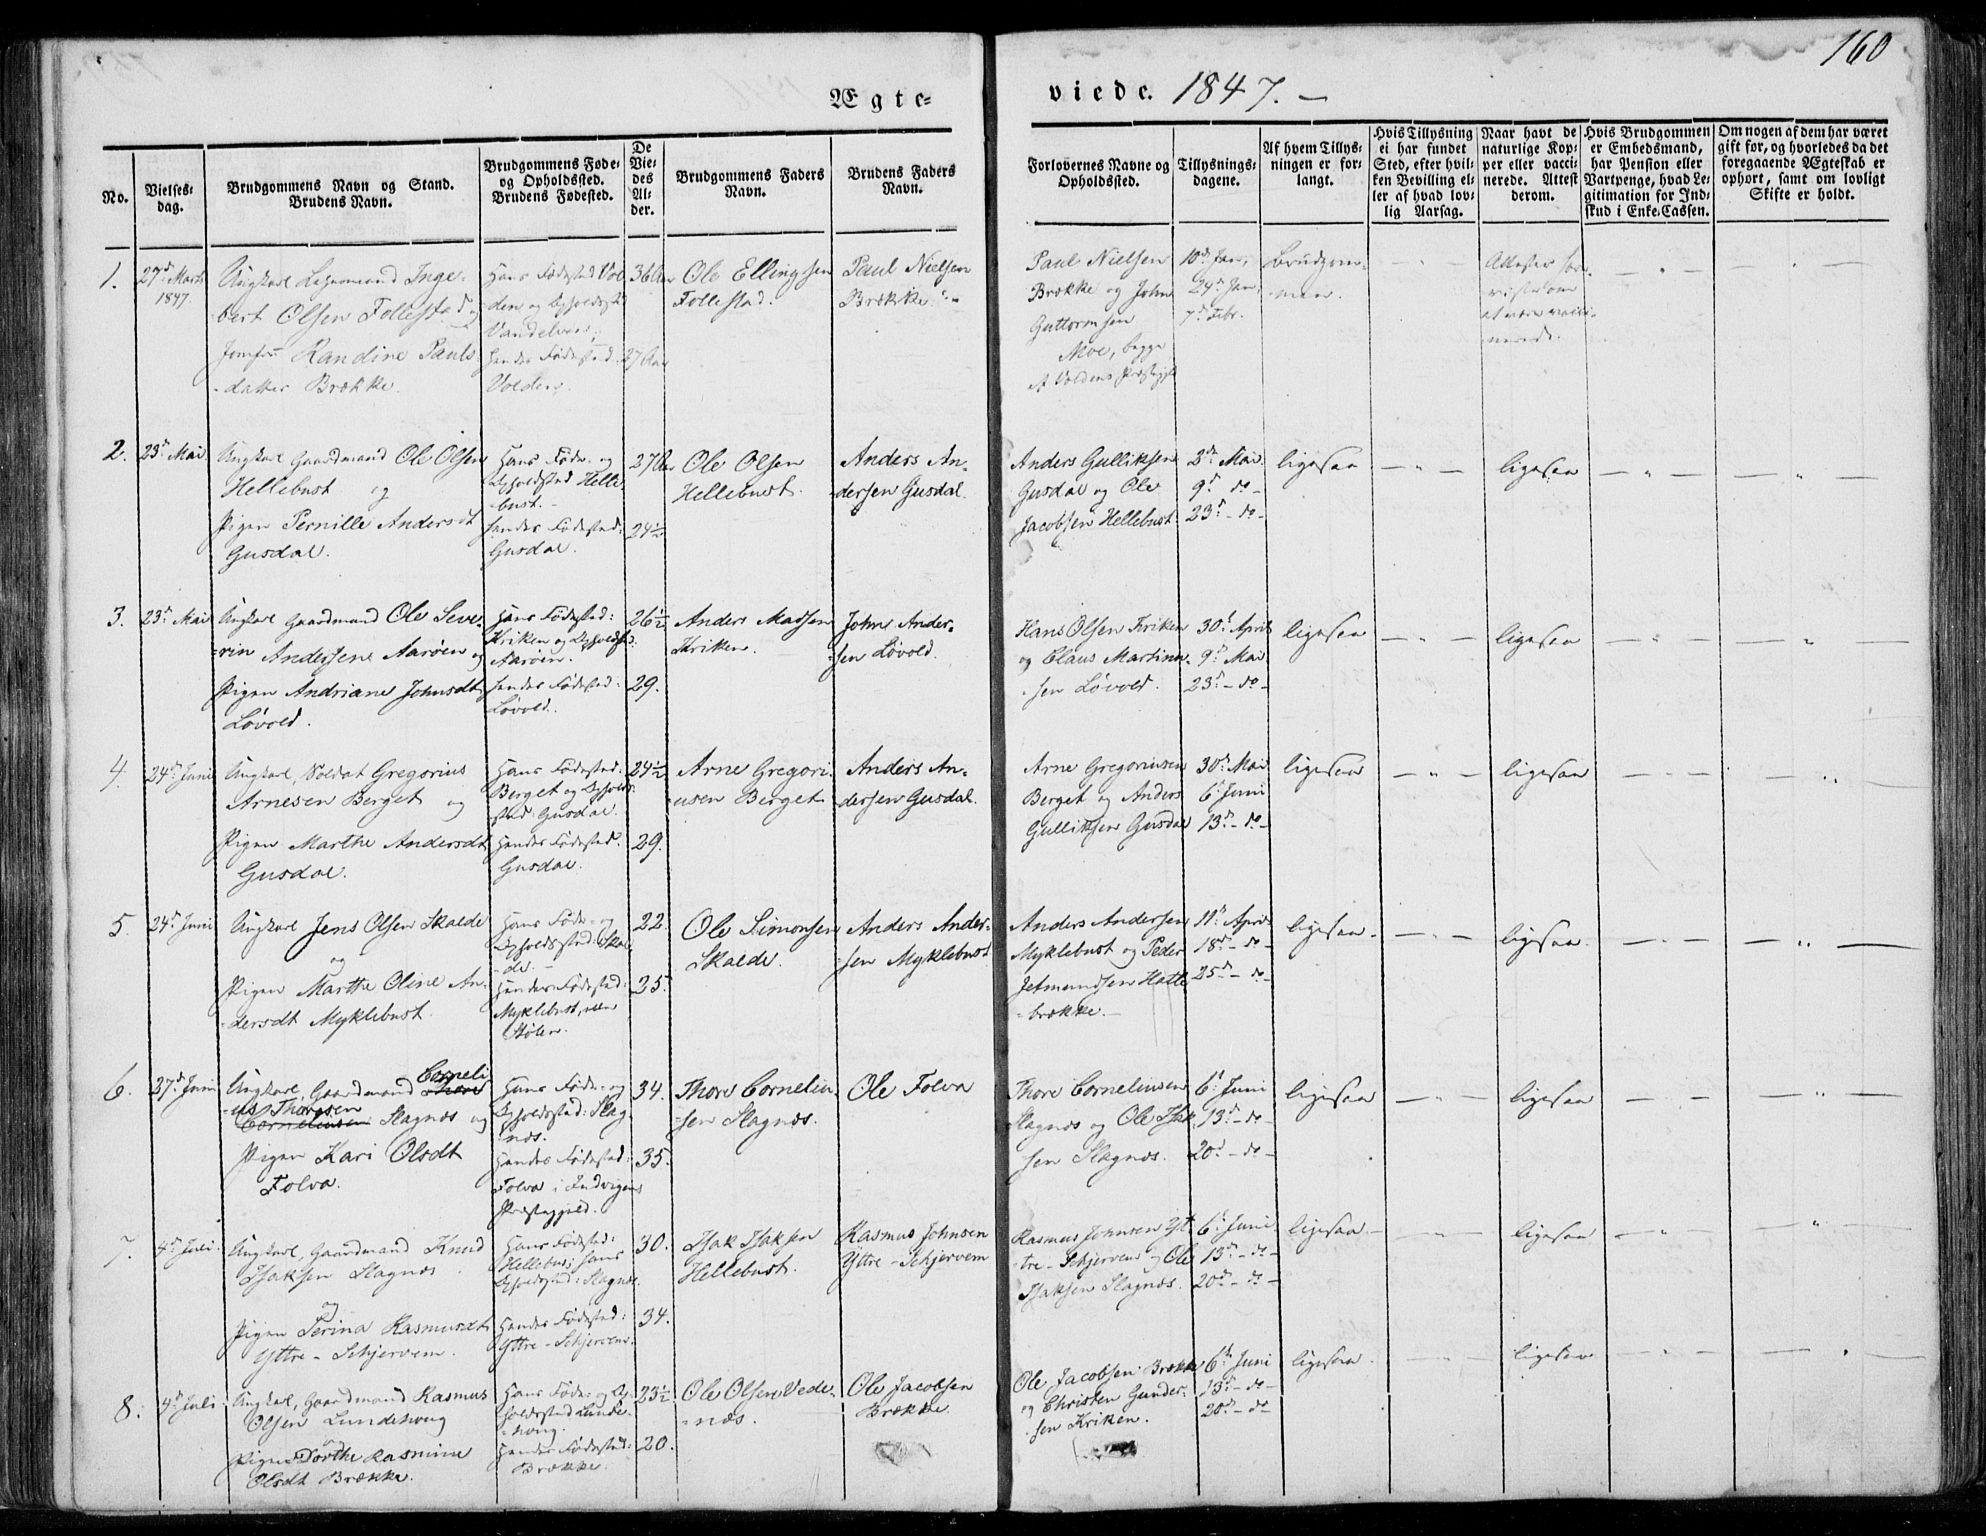 160
Ægte-
viede. 1847. —
No.
Vielses-
dag.
Brudgommens Navn og Stand.
Brudens Navn.
Brudgommens Føde-
og Opholdssted.
Brudens Fødested.
De
Vie-
des
Al-
der.
Brudgommens Faders
Navn.
Brudens Faders
Navn.
Forlovernes Navne og
Opholdssted.
Tillysnings-
dagene.
Af hvem Tillys-
ningen er for-
langt.
Hvis Tillysning
ei har fundet
Sted, efter hvil-
ken Bevilling el-
ler af hvad lov-
lig Aarsag.
Naar havt de
naturlige Kop-
per eller vacci-
nerede. Attest
derom.
Hvis Brudgommen
er Embedsmand,
har Pension eller
Vartpenge, hvad Le-
gitimation for Ind-
skud i Enke-Cassen.
Om nogen af dem har været
gift før, og hvorledes da det
foregaaende Ægteskab er
ophørt, samt om lovligt
Skifte er holdt.
1.
27d Marts
1847.
Ungkarl Inge-
bert Olsen Follestad og
Jomfru Randine Pauls-
datter Brække.
Hans Fødested Vol-
den og Opholdssted
Vandelven,
Hendes Fødested:
Volden.
36 Aar
27 Aar
Ole Ellingsen
Follestad.
Paul Nielsen
Brække.
Paul Nielsen
Brække og John
Guttormsen
Moe, begge
af Voldens Præstegjeld
10d Jan,
24d Jan,
7d Febr.
Brudgom-
men.
Attester fore-
vistes om
at være vacci-
nerede.
2.
23d Mai.
Ungkarl Gaardmand Ole Olsen
Hellebust og
Pigen Pernille Andersdt
Gusdal.
Hans Føde- og
Opholdssted Helle-
bust.
Hendes Fødested:
Gusdal.
27 Aar
24½
Ole Olsen
Hellebust.
Anders An-
dersen Gusdal.
Anders Gulliksen
Gusdal og Ole
Jacobsen Hellebust.
2d Mai.
9d do -
23d - do -
ligesaa
ligesaa
3.
23d Mai
Ungkarl Gaardmand Ole Seve-
rin Andersen Aarøen og
Pigen Andriane Johnsdt
Løvold.
Hans Fødested:
Kriken og Opholdssted
Aarøen.
Hendes Fødested:
Løvold.
26½
29.
Anders Madsen
Kriken.
John Ander-
sen Løvold.
Hans Olsen Kriken
og Claus Martinu-
sen Løvold.
30d April
9d Mai
23d - do -
ligesaa
ligesaa
4.
24d Juni
Ungkarl, Soldat Gregorius
Arnesen Berget og
Pigen Marthe Andersdt
Gusdal.
Hans Fødested:
Berget og Opholds-
sted Gusdal.
Hendes Fødested:
Gusdal.
24½
29.
Arne Gregori-
usen Berget
Anders An-
dersen Gusdal.
Arne Gregoriusen
Berget og Anders
Gulliksen Gusdal
30d Mai
6d Juni
13d - do -
ligesaa
ligesaa
5.
24d Juni
Ungkarl Jens Olsen Skalde
og
Pigen Marthe Oline An-
dersdt Myklebust.
Hans Føde- og
Opholdssted: Skal-
de.
Hendes Fødested:
Myklebust,
22
25.
Ole Simonsen
Skalde.
Anders Ander-
sen Myklebust
Anders Andersen
Myklebust og Peder
Jetmundsen Hatle-
brække.
11d April
18d - do -
25d - do -
ligesaa
ligesaa.
6.
27d Juni
Ungkarl, Gaardmand Corneli-
us Thoresen
Cornelinsen Slagnæs og
Pigen Kari Olsdt
Folva.
Hans Føde- og
Opholdssted: Slag-
næs.
Hendes Fødested:
Folva i Indvigens
Præstegjeld.
34.
35.
Thore Corneliu-
sen Slagnæs.
Ole Folva
Thore Corneliusen
Slagnæs og Ole Isak-
sen Slagnæs.
6d Juni
13d - do -
20d - do -
ligesaa
ligesaa
7.
4d Juli.
Ungkarl, Gaardmand Knud
Isaksen Slagnæs
og
Pigen Perina Rasmusdt
Yttre-Schjervem.
Hans Fødested:
Hellebust, Hans
Opholdssted: Slagnæs.
Hendes Fødested:
Yttre-Schjervem.
30.
34.
Isak Isaksen
Hellebust.
Rasmus Johnsen
Yttre-Schjervem
Rasmus Johnsen Yt-
tre-Schjervem og Ole
Isaksen Slagnæs.
6d Juni
13d - do -
20d - do -
ligesaa
ligesaa
8.
4d Juli
Ungkarl, Gaardmand Rasmus
Olsen Lundehoug
og
Pigen Dorthe Rasmine
Olsdt Brække.
Hans Føde- og Op-
holdssted Lunde-
houg.
Hendes Fødested:
Brække.
23½
20.
Ole Olsen Vede-
næs.
Ole Jacobsen
Brække.
Ole Jacobsen Brække
og Christen Gunder-
sen Kriken.
6d Juni
13d - do -
20d - do
ligesaa
ligesaa